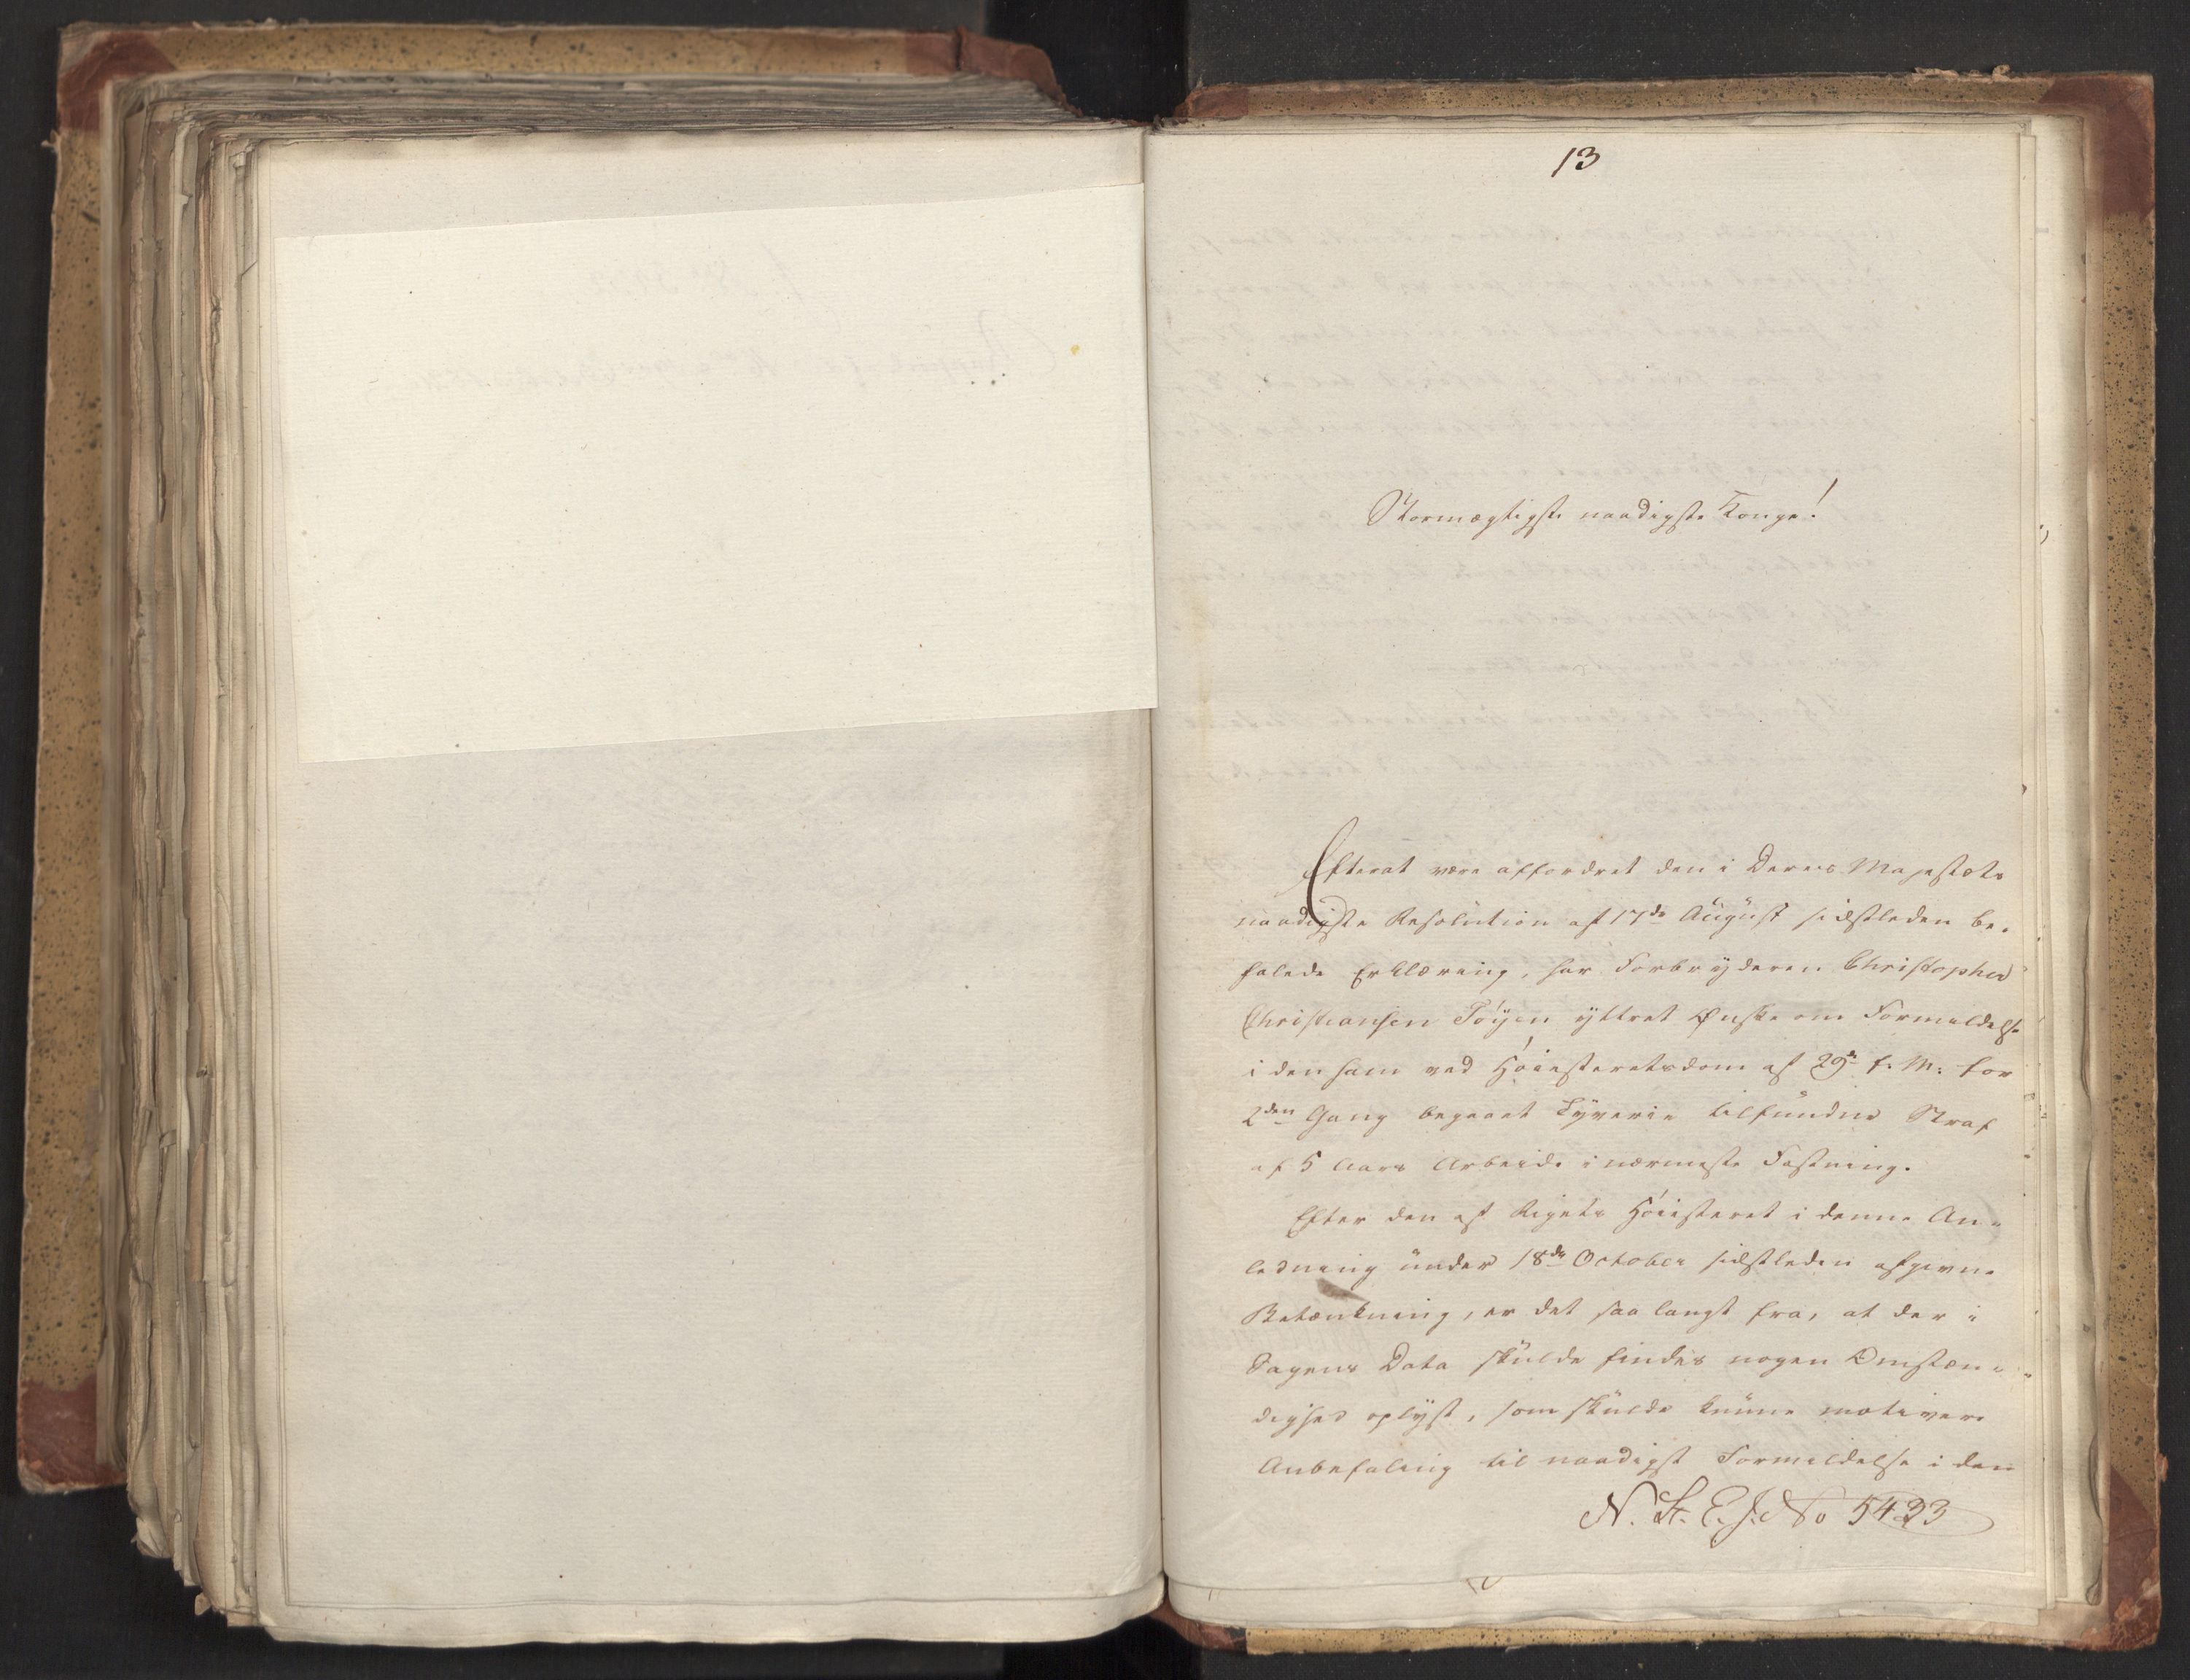 13
Stormægtigste naadigste Konge!
Efterat være affordret den i Deres Majestæts
naadigste Resolution af 17de August sidstleden be-
falede Erklæring, har Forbryderen Christopher
Christiansen Tøyen yttret Ønske om Formildelse
i den ham ved Høiesteretsdom af 29de f. M. for
2den Gang begaaet Tyverie tilfundne Straf
af 5 Aars Arbeide i nærmeste Fæstning.
Efter den af Rigets Høiesteret i denne An-
ledning under 18de October sidstleden afgivne
Betænkning, er det saa langt fra, at der i
Sagens Data skulde findes nogen Omstæn-
dighed oplyst, som skulde kunne motivere
Anbefaling til naadigst Formildelse i den
N. St. E. J. No 5423